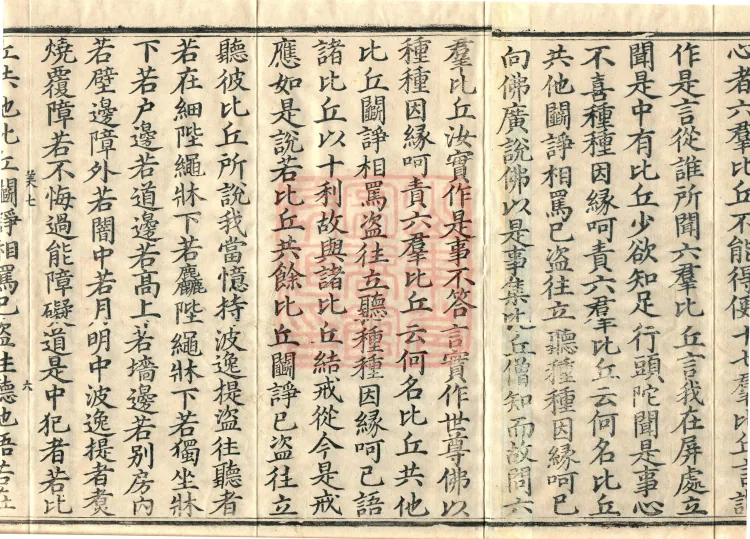 心者六羣比丘不能得便十七羣比丘言誰
作是言從誰所聞六羣比丘言我在屏處立
聞是中有比丘少欲知足行頭陀聞是事心
不喜種種因緣呵責六羣比丘云何名比丘
共他鬬諍相罵已盜往立聽種種因緣呵已
向佛廣說佛以是事集比丘僧知而故問六
羣比丘汝實作是事不答言實作世尊佛以
種種因緣呵責六羣比丘云何名比丘共他
比丘鬬諍相罵盜往立聽種種因緣呵已語
諸比丘以十利故與諸比丘結戒從今是戒
應如是說若比丘共餘比丘鬬諍已盜往立
聽彼比丘所說我當憶持波逸提盜往聽者
若在細陛繩牀下若麤陛繩牀下若獨坐牀
下若戶邊若道邊若高上若墻邊若別房內
若壁邊障外若闇中若月明中波逸提者煑
燒覆障若不悔過能障礙道是中犯者若比
笑七 六
丘共他比丘鬬諍相罵已盜往聽他語若在